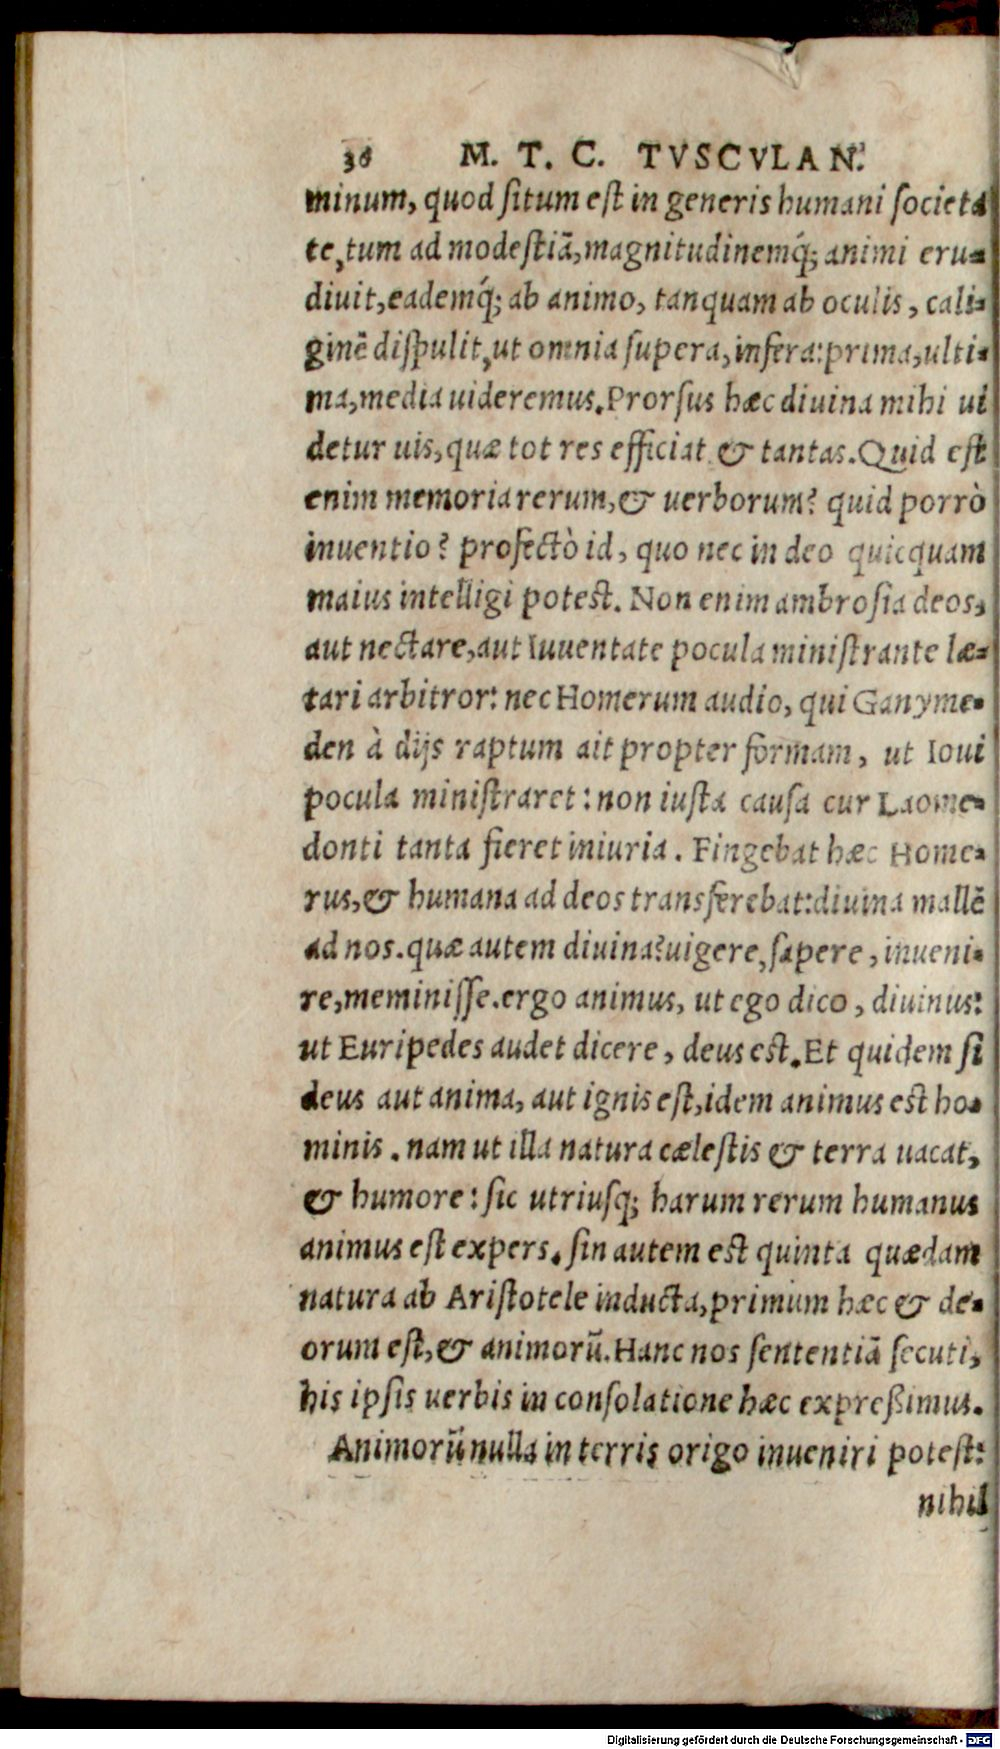 36 M. T. C. TVSCVLAN.
minum, quod ſitum eſt in generis humani ſocieta
te, tum ad modeſtiã, magnitudinemq́; animi eru-
diuit, eademq́; ab animo, tanquam ab oculis, cali-
ginẽ diſpulit, ut omnia ſupera, infera: prima, ulti-
ma, media uideremus. Prorſus hæc diuina mihi ui
detur uis, quæ tot res efficiat & tantas. Quid eſt
enim memoria rerum, & uerborum? quid porrò
inuentio? profectò id, quo nec in deo quicquam
maius intelligi poteſt. Non enim ambroſia deos,
aut nectare, aut Iuuentate pocula miniſtrante læ-
tari arbitror: nec Homerum audio, qui Ganyme-
den à dijs raptum ait propter formam, ut Ioui
pocula miniſtraret: non iuſta cauſa cur Laome-
donti tanta fieret iniuria. Fingebat hæc Home-
rus, & humana ad deos transferebat: diuina mallẽ
ad nos. quæ autem diuina? uigere, ſapere, inueni-
re, meminiſſe. ergo animus, ut ego dico, diuinus:
ut Euripedes audet dicere, deus eſt. Et quidem ſi
deus aut anima, aut ignis eſt, idem animus eſt ho-
minis. nam ut illa natura cæleſtis & terra uacat,
& humore: ſic utriuſq; harum rerum humanus
animus eſt expers. ſin autem eſt quinta quædam
natura ab Ariſtotele inducta, primum hæc & de-
orum eſt, & animorũ. Hanc nos ſententiã ſecuti,
his ipſis uerbis in conſolatione hæc expreßimus.
Animorũ nulla in terris origo inueniri poteſt:
nihil
Digitalisierung gefördert durch die Deutsche Forschungsgemeinschaft - DFG